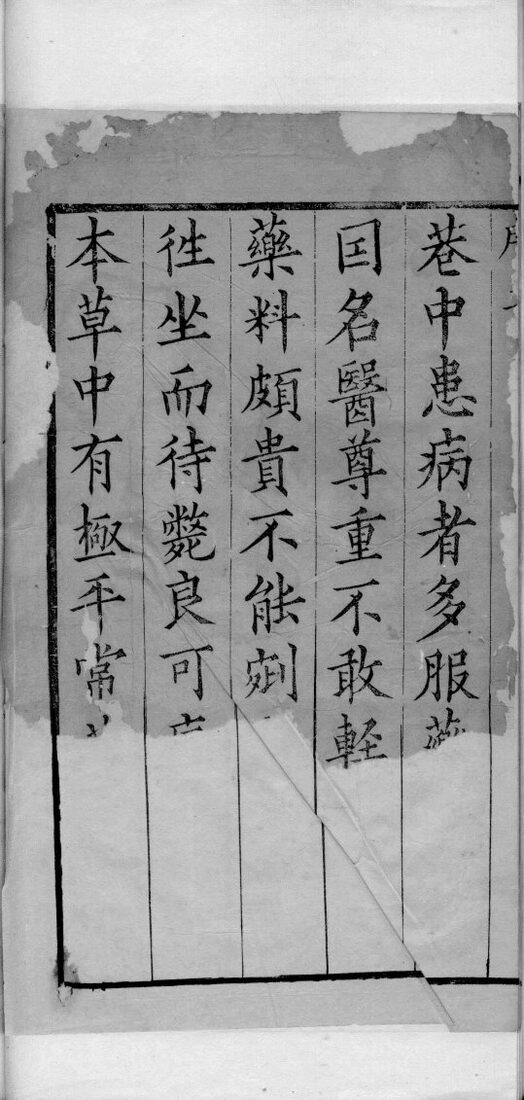 巷中患病者多服藥
囯名醫尊重不敢軽
藥料頗貴不能剜
徃坐而待斃良可
本草中有極平常